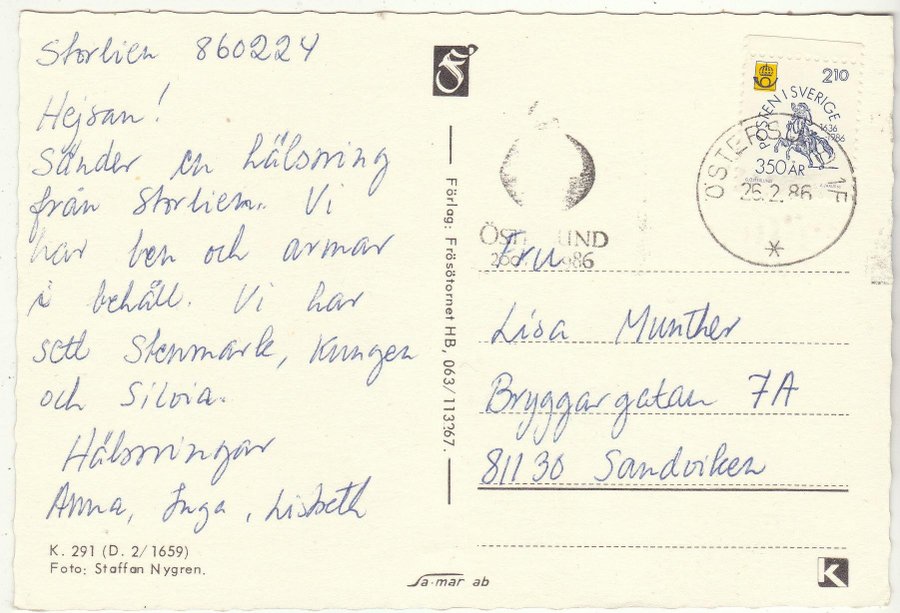 Storlien 860224
Hejsan!
Sänder en hälsning
från Storlien. Vi
har ben och armar
i behåll. Vi har
sett Stenmark, Kungen
och Silvia.
Hälsningar
Anna, Inga, Lisbeth
K. 291 (D. 2/1659)
Foto: Staffan Nygren.
Förlag: Frösötornet HB, 063/113367.
Sa-mar ab
210
POSTEN I SVERIGE
1636
1986
350 ÅR
26.2.86
Fru
Lisa Munther
Bryggargatan 7A
81130 Sandviken
K